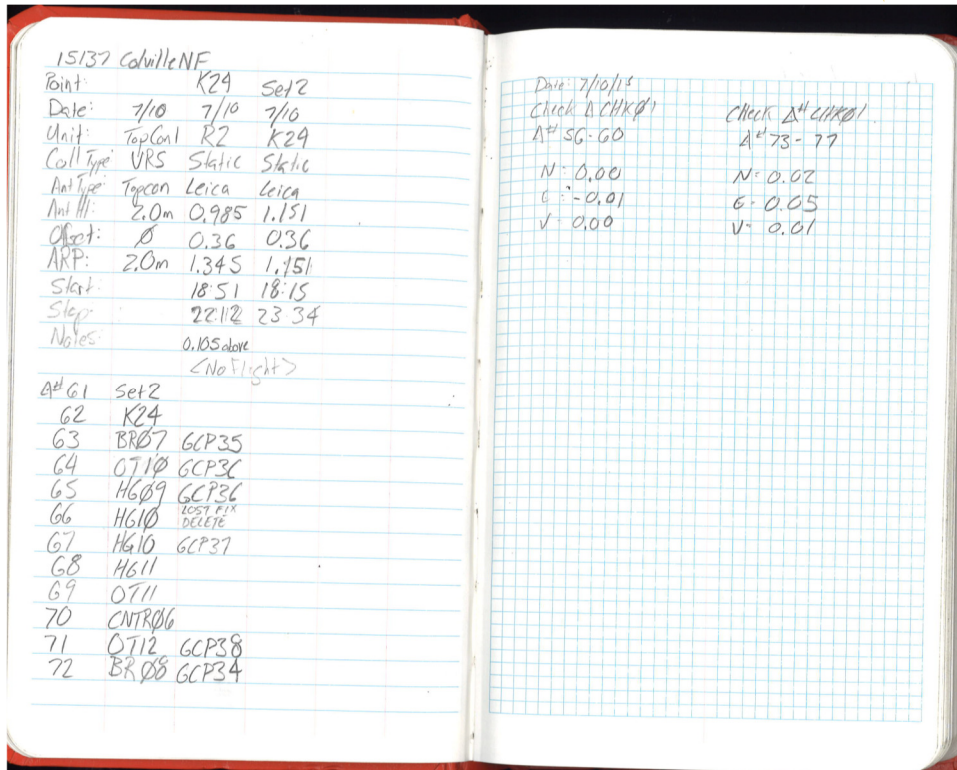 15137 Colville NF
Point: K24 Set2
Date: 7/10 7/10 7/10
Unit: TopCon1 R2 K24
Coll Type: VRS Static Static
Ant Type: Topcon Leica Leica
Ant HI: 2.0m 0.985 1.151
Offset: Ø 0.36 0.36
ARP: 2.0m 1.345 1.151
Start: 18:51 18:15
Stop: 22:12 23:34
Notes: 0.105 above
<No Flight>
Δ# 61 Set2
62 K24
63 BRØ7 GCP35
64 OT1Ø GCP36
65 HGØ9 GCP36
66 HG1Ø LOST FIX
DELETE
67 HG10 GCP37
68 HG11
69 OT11
70 CNTRØ6
71 OT12 GCP38
72 BRØ8 GCP34
Date: 7/10/15
Check Δ CHKØ1
Δ# 56-60
N: 0.00
E: -0.01
V: 0.00
Check Δ# CHKØ1
Δ# 73-77
N: 0.02
E: 0.05
V: 0.01